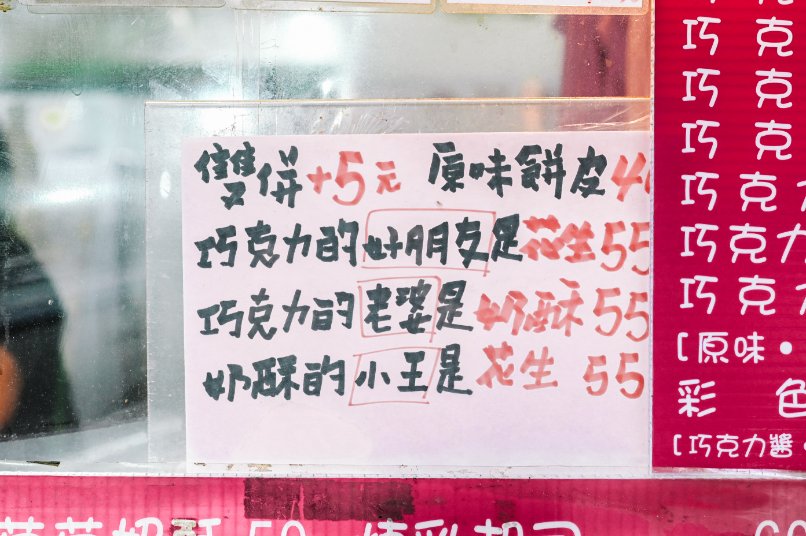 雙併+5元 原味餅皮40
巧克力的好朋友是花生55
巧克力的老婆是奶酥55
奶酥的小王是花生 55
巧克
巧克
巧克
巧克力
巧克力
巧克力
[原味·
彩色
[巧克力醬·
奶酥50